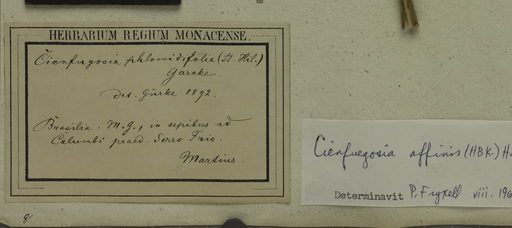 HERBARIUM REGIUM MONACENSE.
Cienfugosia phlomidifolia (St. Hil.)
Garcke
det. Gürke 1892.
Brasilia. M.G., in sepibus ad
Calumbi praed. Serro Frio.
Martius.
Cienfuegosia affinis (HBK.) H
Determinavit P. Fryxell viii. 196